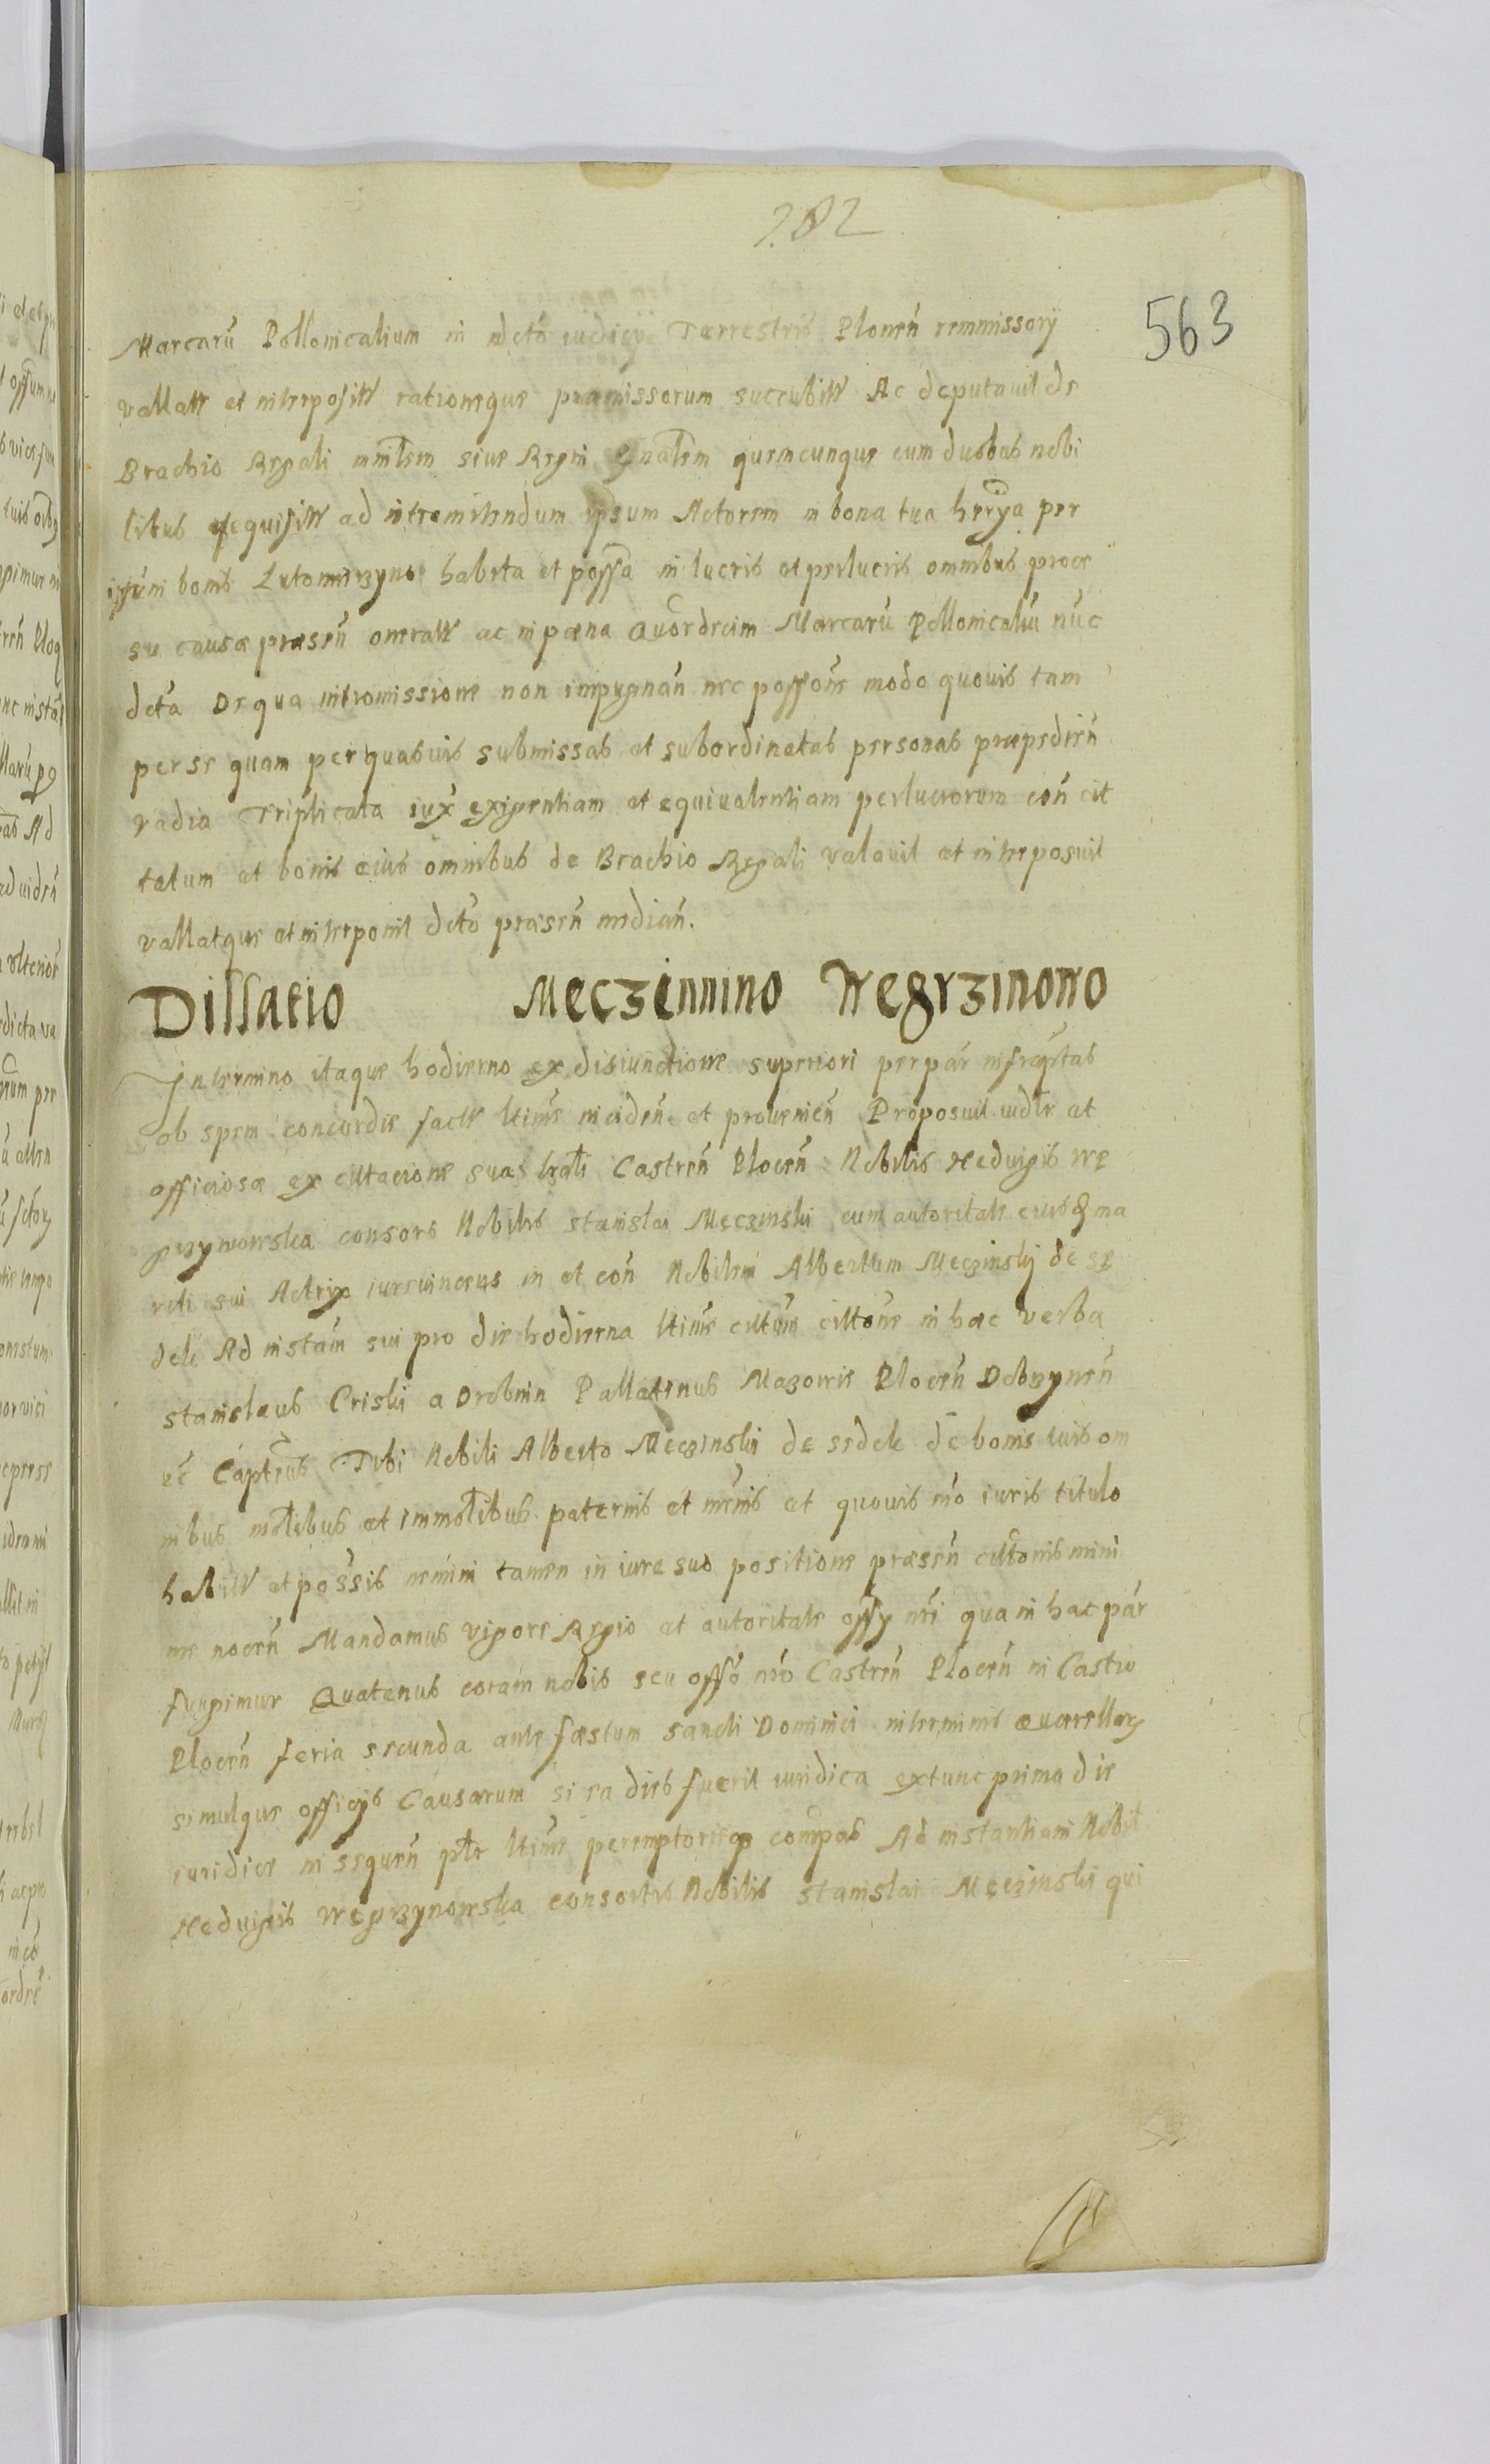 282
563
Marcarū Pollonicalium in dcto iudicÿ Terrestris Plocen̄ remmissorÿ
vallatt et interpositt rationeque pramissorum succubitt Ac deputauit de
Brachio Regali mnl̄rem siue Regni Gnal̄em quemcunque cum duobus nobi
libus ad intromittendum ipsum Actorem in bona tua per
ipsum bonis habita et possa in lucris et perlucris omnibus proce
su causæ præsen̄ oneratt ac in pæna Quordecim Marcarū Pollonicaliū nūc
dcta De qua intromissione non impugnan̄ nec possone modo quouis tam
per se quam per quasuis submissas et subordinatas personas præpedien̄
vadia Triplicata iux exigentiam et equiualentiam perlucrorum con̄ cit
tatum et bonis eius omnibus de Brachio Regali valauit et interposuit
vallatque et interponit dcto præsen̄ median̄.
Dillatio Meczinnino Wegrzinowo
In termino itaque hodierno ex disiunctione superiori per par
ob spem concordie factt ltime inciden̄ et prouenien̄ Proposuit iudlr et
officiosæ ex cittacione sua Castren̄ Plocen̄ Nobilis Heduigis We
grzynowska consors Nobilis Stanislai Męczinski cum autoritate eiusd ma
riti sui Actrix iureuincens in et con̄ Nobilem Albertum Meczinskij de Se
dele Ad instan̄ sui pro die hodierna ltime cittum cittone in hæc verba
Stanislaus Criski a Drobnin Pallatinus Mazowie Plocen̄ Dobrzynen̄
ec̄ Capitneus Tibi Nobili Alberto Meczinski de Sedele de bonis tuis om
nibus mobibus et Immobibus paternis et mrnis et quouis mo iuris titulo
habitt et possis nemini tamen in iure suo positione præsen̄ cittonis mini
me nocen̄ Mandamus vigore Regio et autoritate offÿ nri qua in hac par
fungimur Quatenus coram nobis seu offo nro Castren̄ Plocen̄ in Castro
Plocen̄ feria secunda ante fæstum Sancti Dominici in terminis Quærellarum
simulque officÿs Causarum si ea dies fuerit iuridica extunc prima die
iuridica in sequen̄ ptr ltime peremptorieque compas Ad instantiam Nobil
Heduigis Węgrzynowska consortis Nobilis Stanislai Męczinski qui